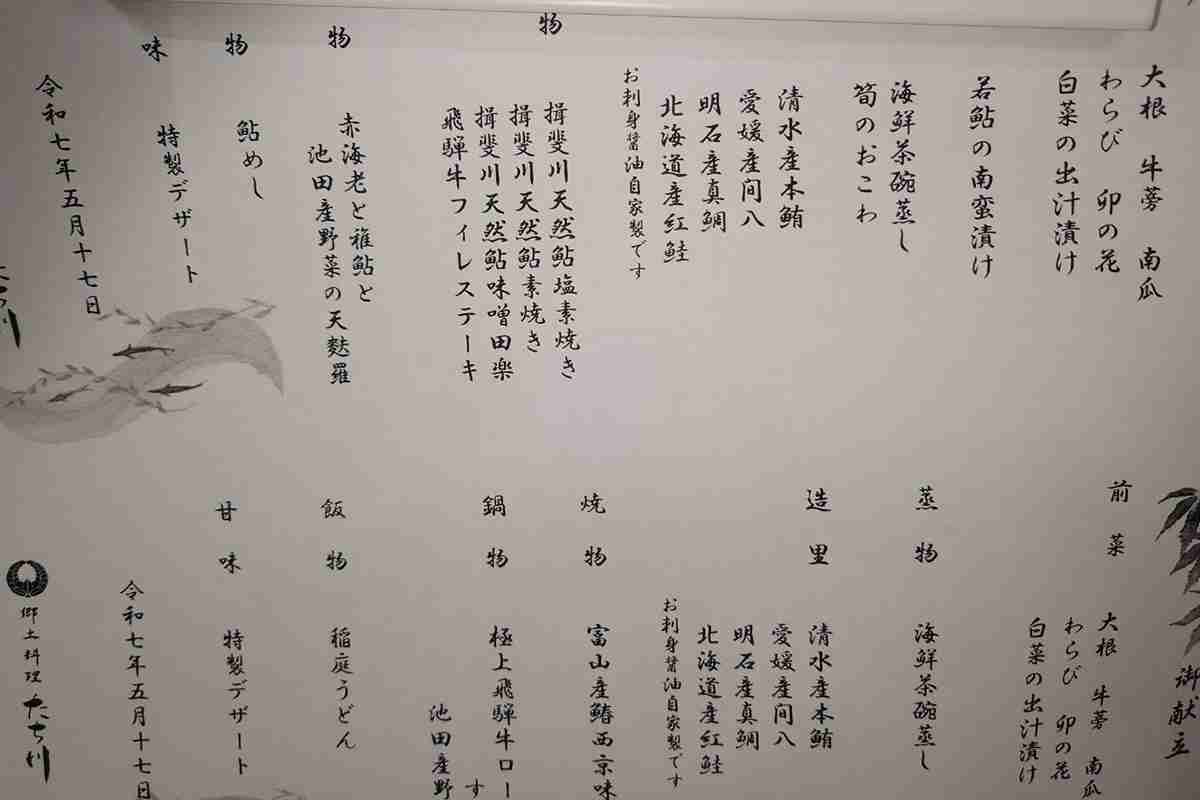 大根 牛蒡 南瓜
わらび 卯の花
白菜の出汁漬け
若鮎の南蛮漬け
海鮮茶碗蒸し
筍のおこわ
清水産本鮪
愛媛産間八
明石産真鯛
北海道産紅鮭
お刺身醤油自家製です
物
揖斐川天然鮎塩素焼き
揖斐川天然鮎素焼き
揖斐川天然鮎味噌田楽
飛騨牛フィレステーキ
物
赤海老と稚鮎と
池田産野菜の天麩羅
物
鮎めし
味
特製デザート
令和七年五月十七日
御献立
前菜
大根 牛蒡 南瓜
わらび 卯の花
白菜の出汁漬け
蒸物
海鮮茶碗蒸し
造里
清水産本鮪
愛媛産間八
明石産真鯛
北海道産紅鮭
お刺身醤油自家製です
焼物
富山産鰆西京味
鍋物
極上飛騨牛ロー
す
池田産野
飯物
稲庭うどん
甘味
特製デザート
令和七年五月十七日
郷土料理 たち川